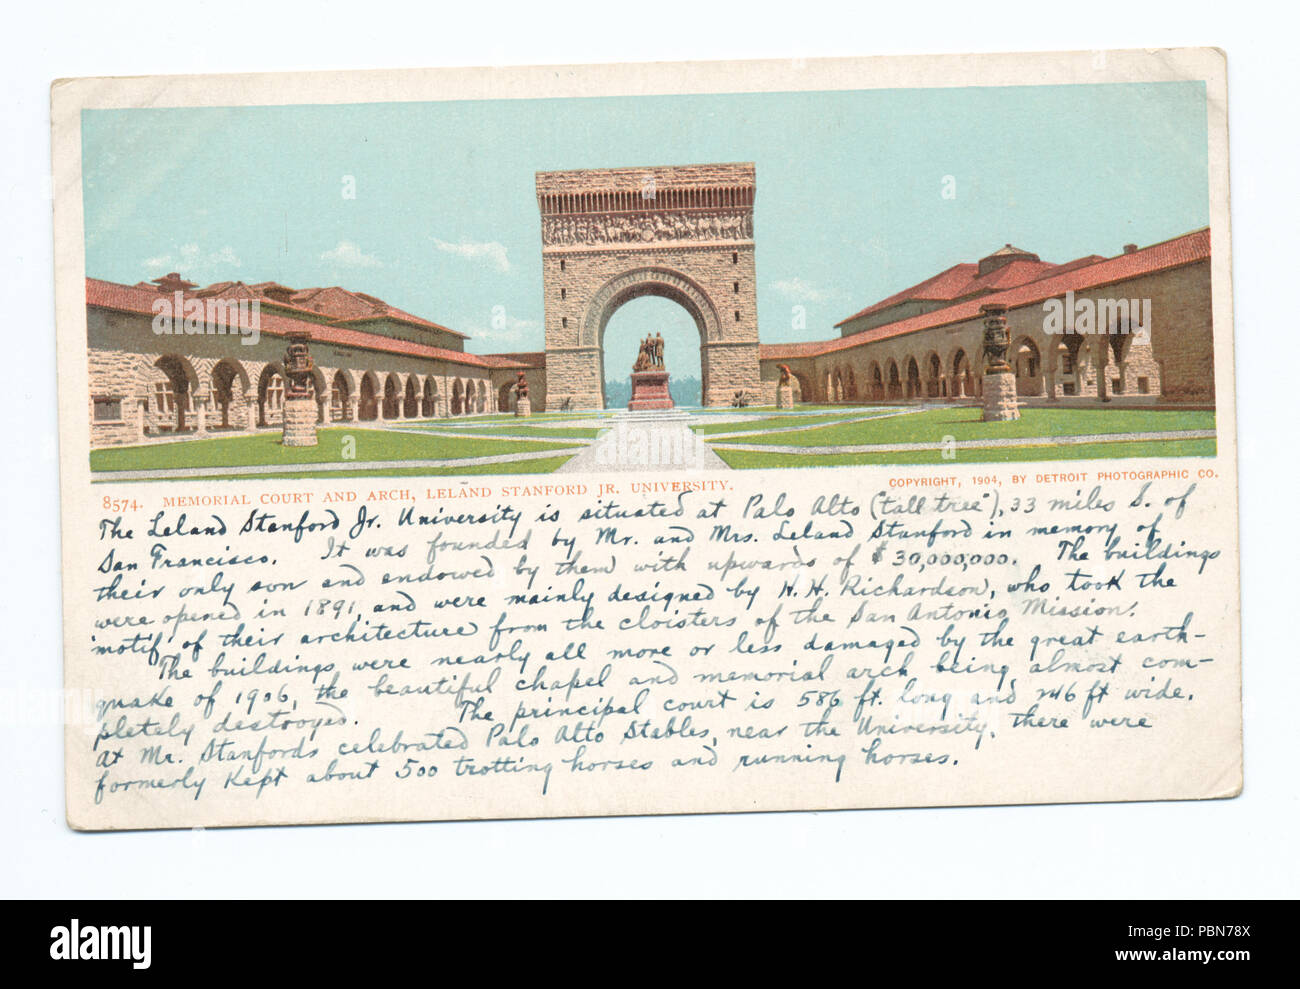 8574. MEMORIAL COURT AND ARCH, LELAND STANFORD JR. UNIVERSITY.
COPYRIGHT, 1904, BY DETROIT PHOTOGRAPHIC CO.
The Leland Stanford Jr. University is situated at Palo Alto ("tall tree"), 33 miles S. of
San Francisco. It was founded by Mr. and Mrs. Leland Stanford in memory of
their only son and endowed by them with upwards of $30,000,000. The buildings
were opened in 1891, and were mainly designed by H. H. Richardson, who took the
motif of their architecture from the cloisters of the San Antonio Mission.
The buildings were nearly all more or less damaged by the great earth-
quake of 1906, the beautiful chapel and memorial arch being almost com-
pletely destroyed. The principal court is 586 ft. long and 246 ft wide.
At Mr. Stanfords celebrated Palo Alto Stables, near the University, there were
formerly kept about 500 trotting horses and running horses.
a
a
a
a
a
a
alamy
Image ID: PBN78X
www.alamy.com